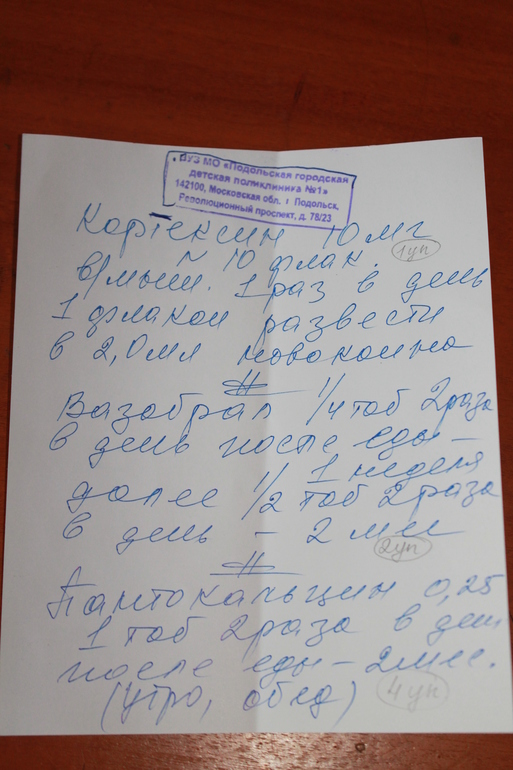 ПУЗ МО «Подольская городская
детская поликлиника №1»
142100, Московская обл. г Подольск,
Революционный проспект, д. 78/23
Кортексин 10 мг
N 10 флак. 1уп
в/мыш. 1 раз в день
1 флакон развести
в 2,0мл новокаина
#
Вазобрал 1/4 таб 2 раза
в день после еды –
1 неделя
далее 1/2 таб 2 раза
в день – 2 мес
2уп
#
Пантокальцин 0,25
1 таб 2 раза в день
после еды – 2 мес.
(утро, обед) 4уп